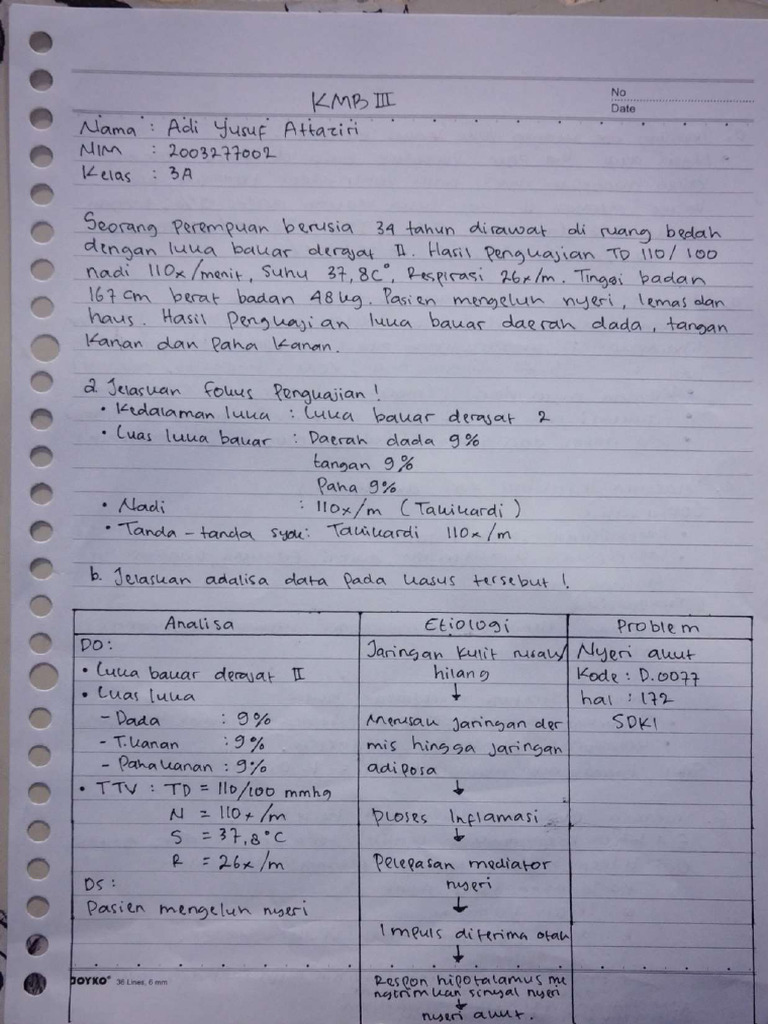 KMB III
No
Date
Nama : Adi Yusuf Attaziri
NIM : 2003277002
Kelas : 3A
Seorang perempuan berusia 34 tahun dirawat di ruang bedah
dengan luka bakar derajat II. Hasil pengkajian TD 110/100
nadi 110x/menit, Suhu 37,8C°, Respirasi 26x/m. Tinggi badan
167 cm berat badan 48 kg. Pasien mengeluh nyeri, lemas dan
haus. Hasil Pengkajian luka bakar daerah dada, tangan
kanan dan paha kanan.
a. Jelaskan fokus Pengkajian !
• Kedalaman luka : Luka bakar derajat 2
• Luas luka bakar : Daerah dada 9%
tangan 9%
Paha 9%
• Nadi : 110x/m (Takikardi)
• Tanda-tanda syok: Takikardi 110x/m
b. Jelaskan adalisa data pada kasus tersebut !
Analisa Etiologi Problem
DO: Jaringan kulit rusak/ Nyeri akut
• Luka bakar derajat II hilang Kode : D.0077
• Luas luka ↓ hal : 172
- Dada : 9% Merusak jaringan der SDKI
- T.kanan : 9% mis hingga jaringan
- Paha kanan : 9% adiposa
• TTV : TD = 110/100 mmhg ↓
N = 110x/m Proses Inflamasi
S = 37,8°C ↓
R = 26x/m Pelepasan mediator
DS : nyeri
Pasien mengeluh nyeri ↓
Impuls diterima otak
↓
JOYKO 36 Lines, 6 mm Respon hipotalamus me
ngirimkan sinyal nyeri
↓
nyeri akut.